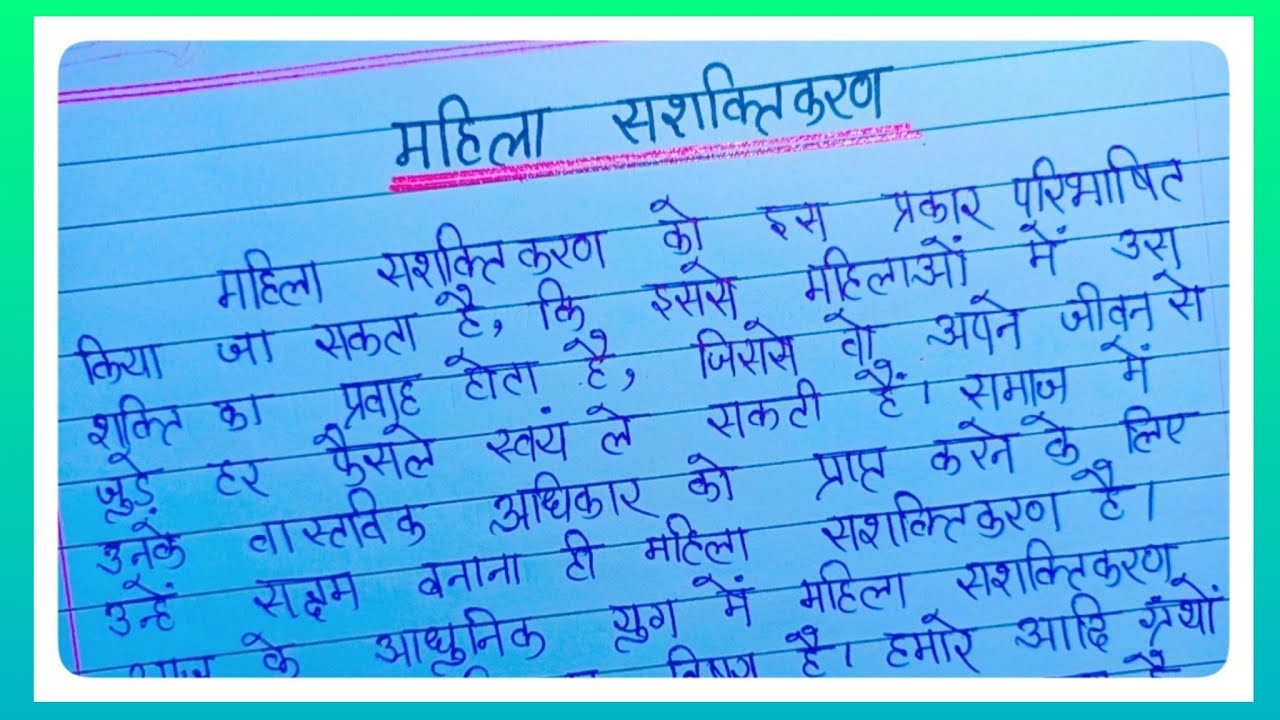 महिला सशक्तिकरण
महिला सशक्तिकरण को इस प्रकार परिभाषित
किया जा सकता है, कि इससे महिलाओं में उस
शक्ति का प्रवाह होता है, जिससे वो अपने जीवन से
जुड़े हर फैसले स्वयं ले सकती हैं। समाज में
उनके वास्तविक अधिकार को प्राप्त करने के लिए
उन्हें सक्षम बनाना ही महिला सशक्तिकरण है।
के आधुनिक युग में महिला सशक्तिकरण
है। हमारे आदि ग्रंथों